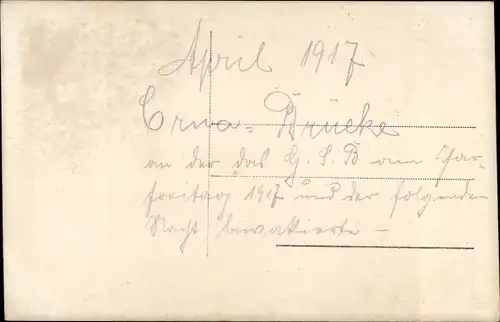 April 1917
Crna-Brücke
an der das G. S. B am Char-
freitag 1917 und der folgenden
Nacht bivakierte -